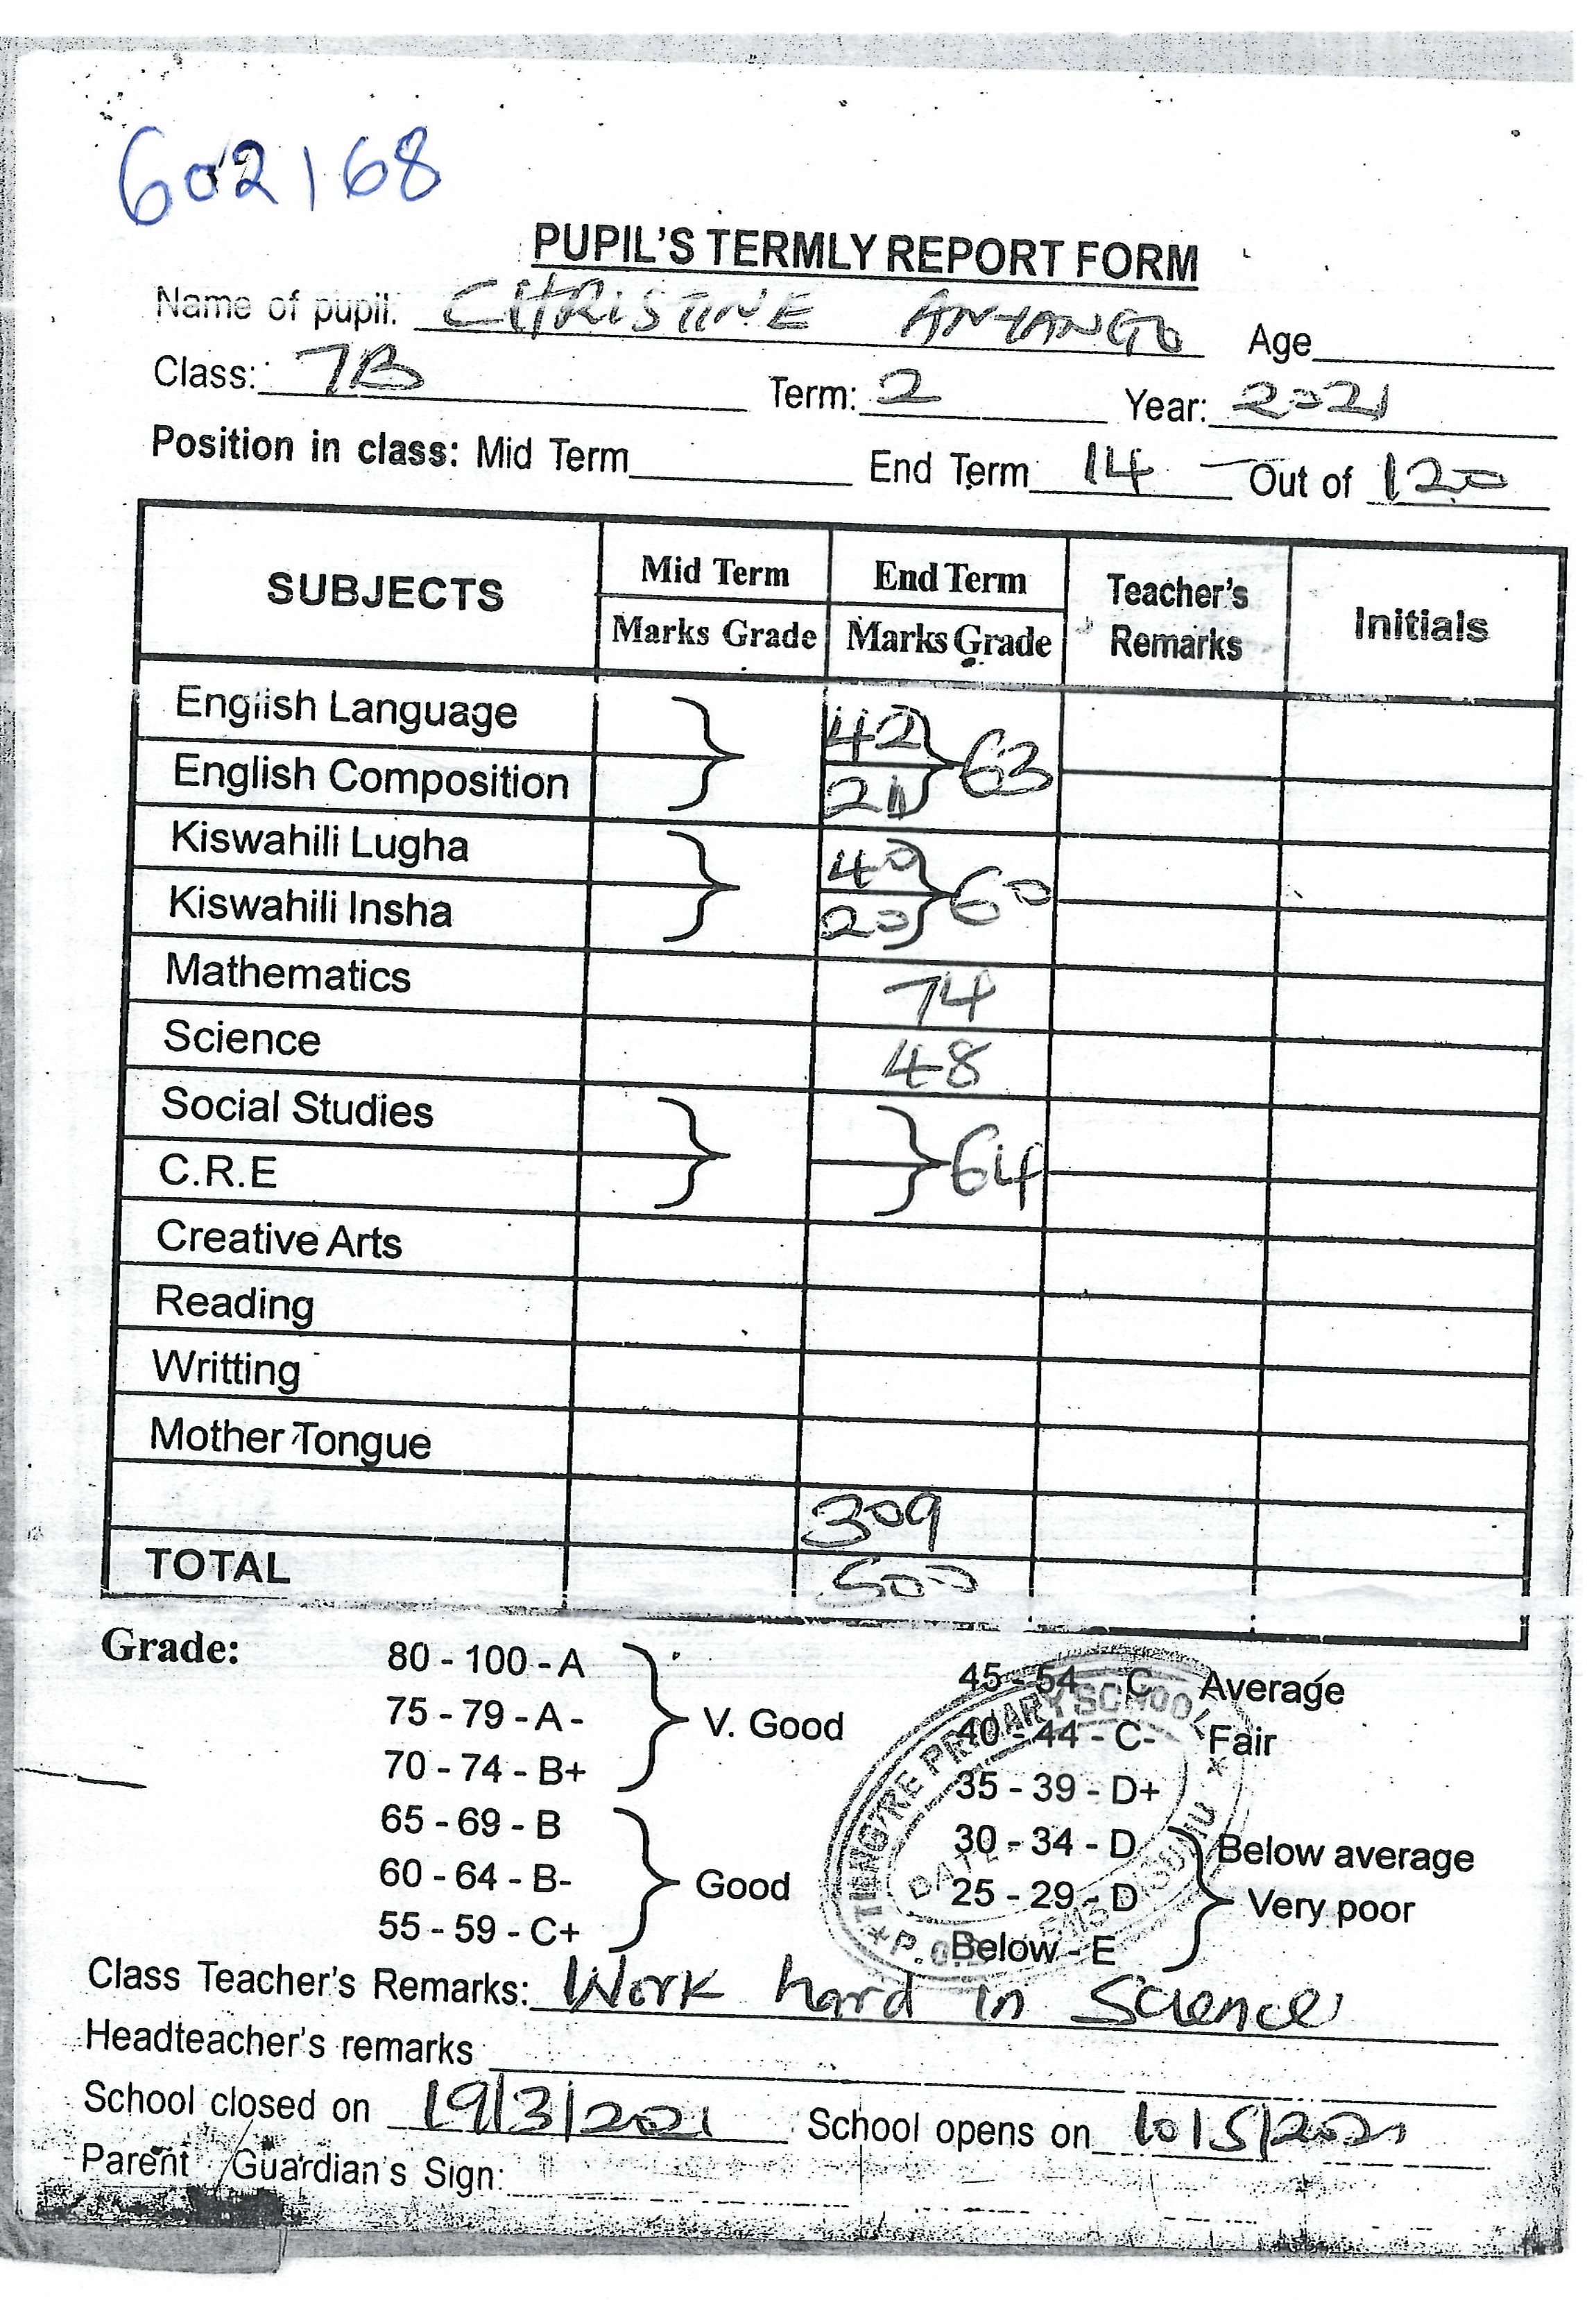 602168
PUPIL'S TERMLY REPORT FORM
Name of pupil: CHRISTINE ANYANGO Age
Class: 7B Term: 2 Year: 2021
Position in class: Mid Term End Term 14 Out of 120
SUBJECTS Mid Term End Term Teacher's Remarks Initials
Marks Grade Marks Grade
English Language 42
63
English Composition 21
Kiswahili Lugha 40
60
Kiswahili Insha 20
Mathematics 74
Science 48
Social Studies
64
C.R.E
Creative Arts
Reading
Writting
Mother Tongue
309
TOTAL 500
Grade:
80 - 100 - A 45 - 54 - C Average
75 - 79 - A - V. Good 40 - 44 - C- Fair
70 - 74 - B+ 35 - 39 - D+
65 - 69 - B 30 - 34 - D Below average
60 - 64 - B- Good 25 - 29 - D Very poor
55 - 59 - C+ Below - E
PRIMARY SCHOOL
DATE
P.O.B
Class Teacher's Remarks: Work hard in Science
Headteacher's remarks
School closed on 19/3/2021 School opens on 10/5/2021
Parent / Guardian's Sign: